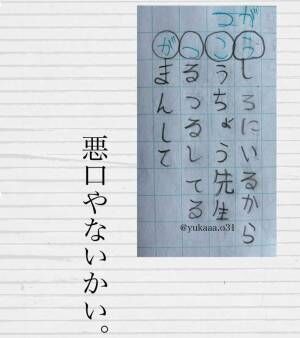 がつ
うしろにいるから
こうちょう先生
つるつるしてる
がまんして
@yukaaa.o31
悪口やないかい。